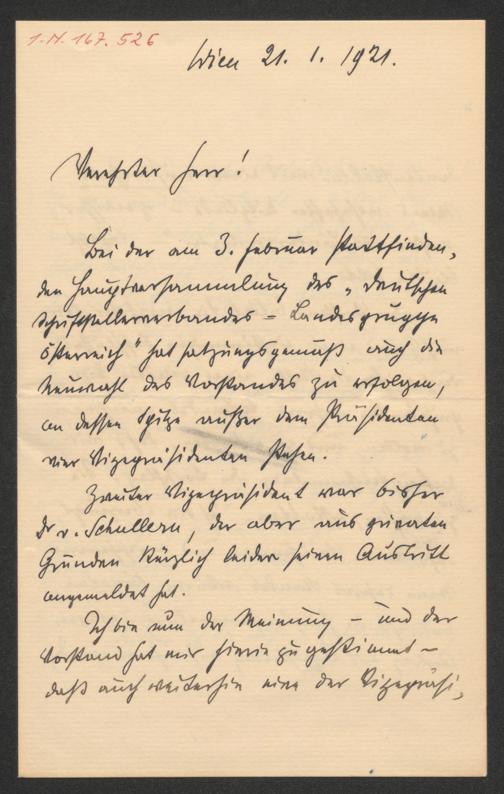 I.N. 167.526
Wien 21. 1. 1921.
Verehrter Herr!
Bei der am 3. Februar stattfinden-
den Hauptversammlung des „Deutschen
Schriftstellerverbandes - Landesgruppe
Österreich" hat satzungsgemäß auch die
Neuwahl des Vorstandes zu erfolgen,
an dessen Spitze außer dem Präsidenten
vier Vizepräsidenten stehen.
Zweiter Vizepräsident war bisher
Dr v. Schullern, der aber aus privaten
Gründen kürzlich leider seinen Austritt
angemeldet hat.
Ich bin nun der Meinung - und der
Vorstand hat mir hierin zugestimmt -
daß auch weiterhin eine der Vizepräsi-